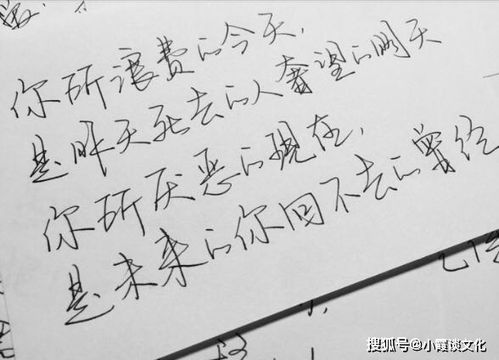 你所浪费的今天,
是昨天死去的人奢望的明天
你所厌恶的现在,
是未来的你回不去的曾经
搜狐号@小霞谈文化